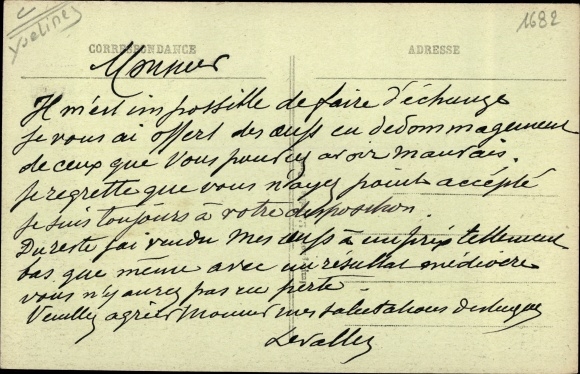 Yvelines
1682
CORRESPONDANCE
ADRESSE
Monsieur
Il m'est impossible de faire d'échange
je vous ai offert des œufs en dédommagement
de ceux que vous pourriez avoir mauvais.
je regrette que vous n'ayez point accepté
je suis toujours à votre disposition.
Du reste j'ai vendu mes œufs à un prix tellement
bas que même avec un résultat médiocre
vous n'y aurez pas eu perte
Veuillez agréer Monsieur mes salutations
Levallez